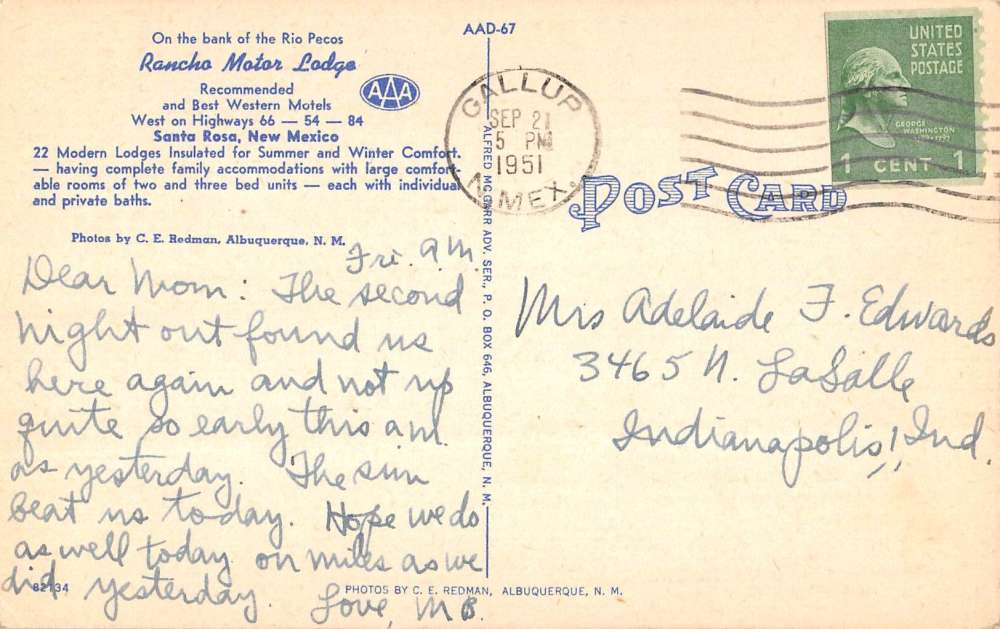 On the bank of the Rio Pecos
Rancho Motor Lodge
Recommended
and Best Western Motels
West on Highways 66 — 54 — 84
Santa Rosa, New Mexico
22 Modern Lodges Insulated for Summer and Winter Comfort.
— having complete family accommodations with large comfort-
able rooms of two and three bed units — each with individual
and private baths.
Photos by C. E. Redman, Albuquerque, N. M.
AAA
AAD-67
ALFRED MC GARR ADV. SER., P. O. BOX 646, ALBUQUERQUE, N. M.
GALLUP
SEP 21
5 PM
1951
N. MEX.
UNITED
STATES
POSTAGE
GEORGE
WASHINGTON
1 CENT 1
POST CARD
Fri. a.m.
Dear Mom: The second
night out found us
here again and not up
quite so early this a.m.
as yesterday. The sun
beat us today. Hope we do
as well today on miles as we
did yesterday. Love, MB.
Mrs Adelaide F. Edwards
3465 N. LaSalle
Indianapolis, Ind.
82134
PHOTOS BY C. E. REDMAN, ALBUQUERQUE, N. M.